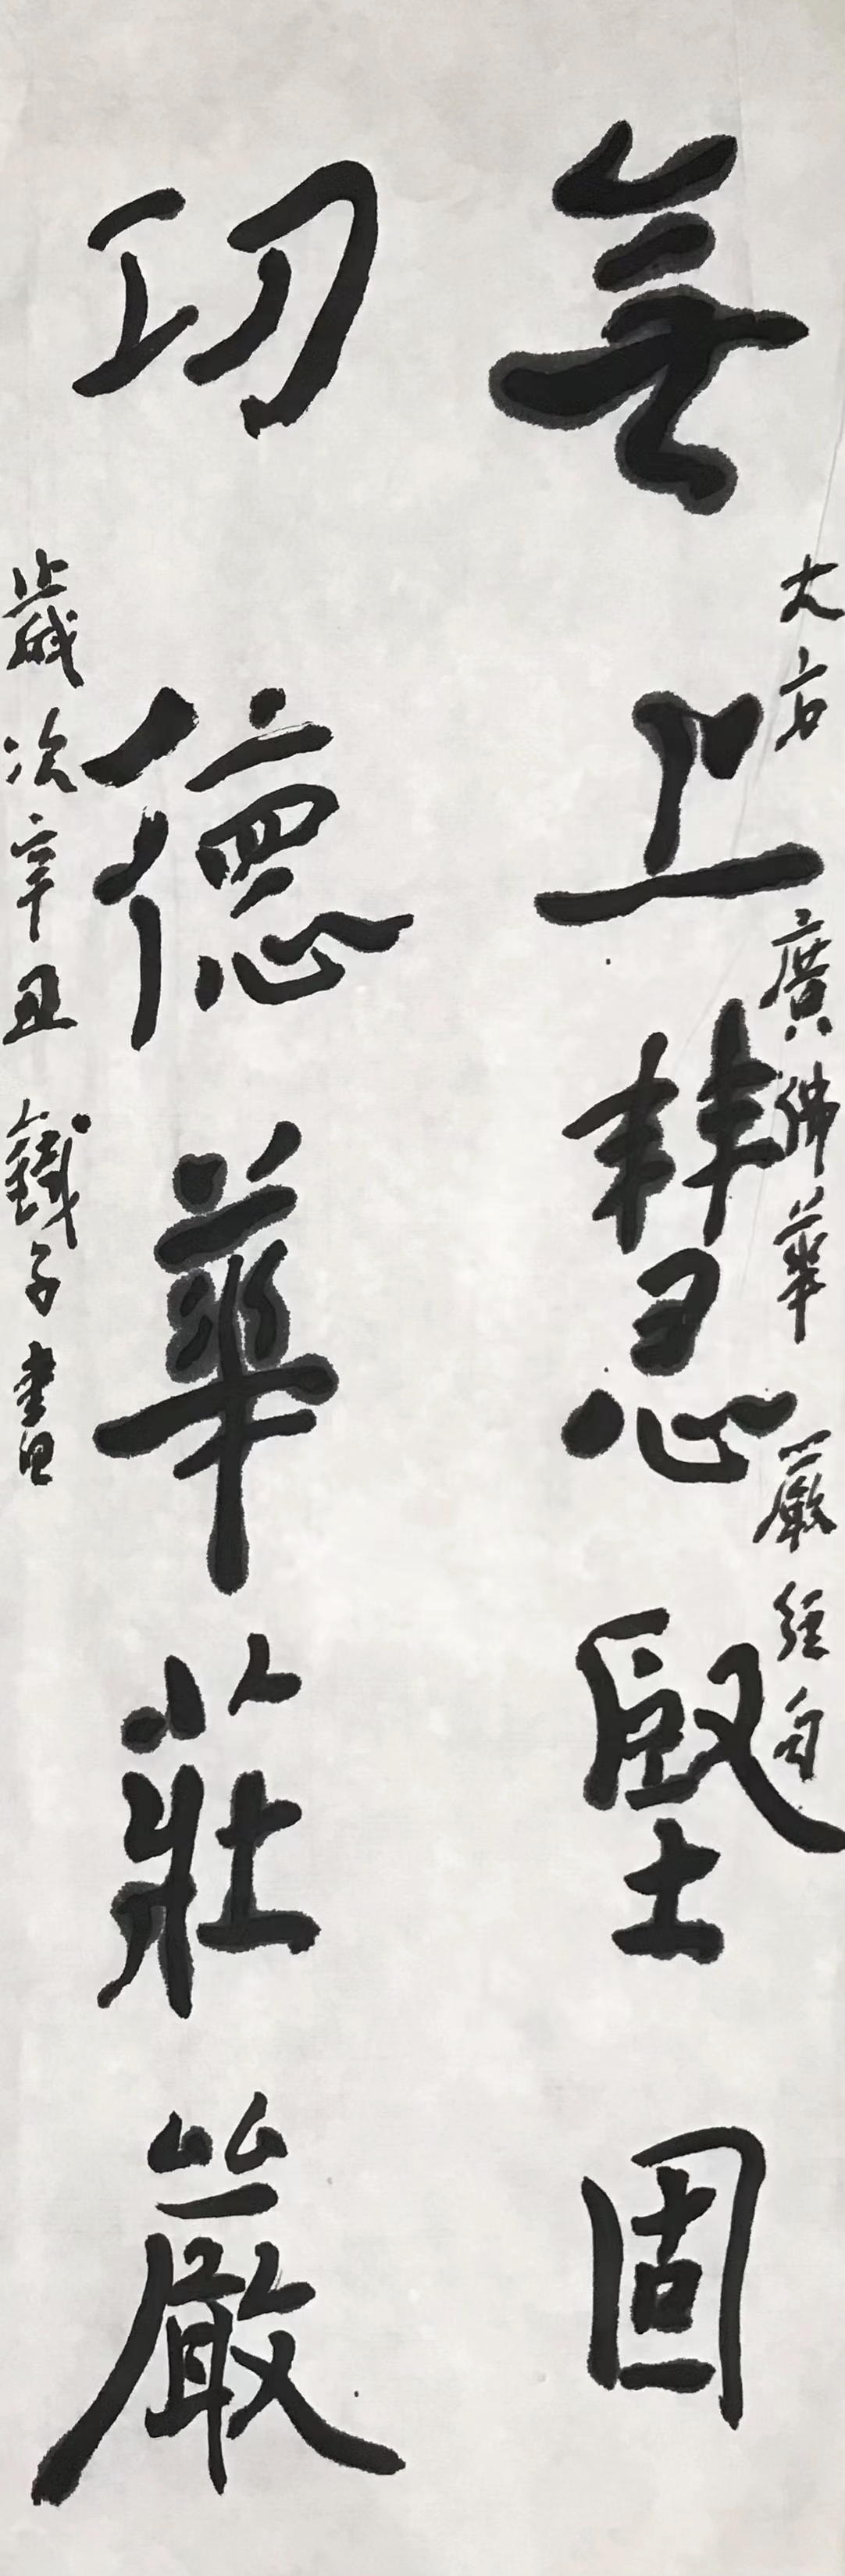 大方廣佛華嚴經句
無上慧堅固
功德華莊嚴
歲次辛丑鐵子書